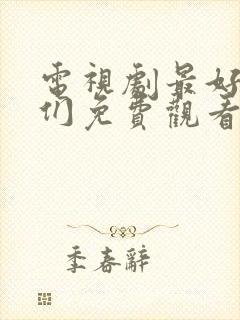 電視劇最好
们免費觀看
季春辭